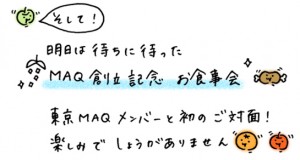 そして!
明日は待ちに待った
MAQ創立記念 お食事会
東京MAQメンバーと初のご対面!
楽しみでしょうがありません